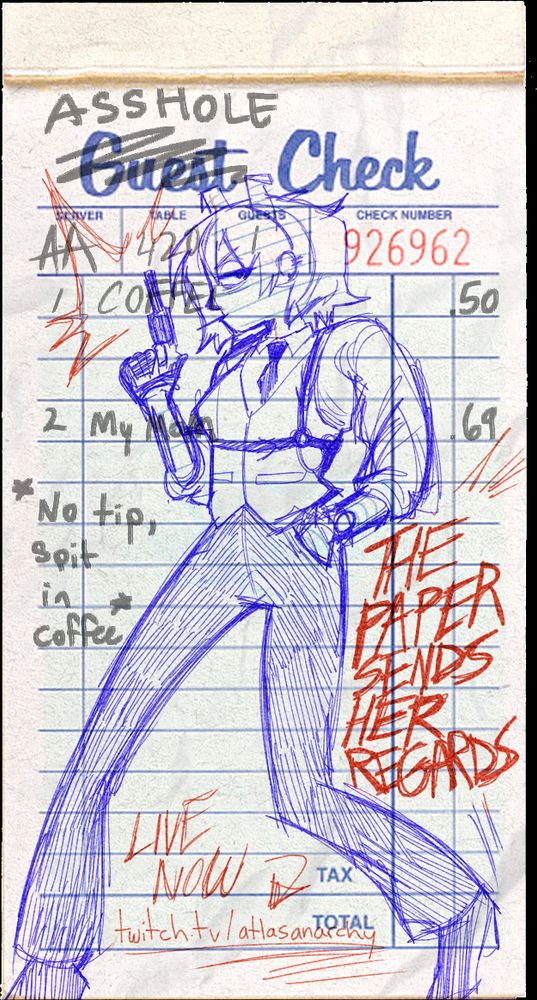 ASSHOLE
Guest Check
SERVER TABLE GUESTS CHECK NUMBER
AA 420 1 926962
1 COFFEE .50
2 My Mom .69
*No tip,
spit
in
coffee*
THE
PAPER
SENDS
HER
REGARDS
LIVE
NOW
TAX
TOTAL
twitch.tv/atlasanarchy